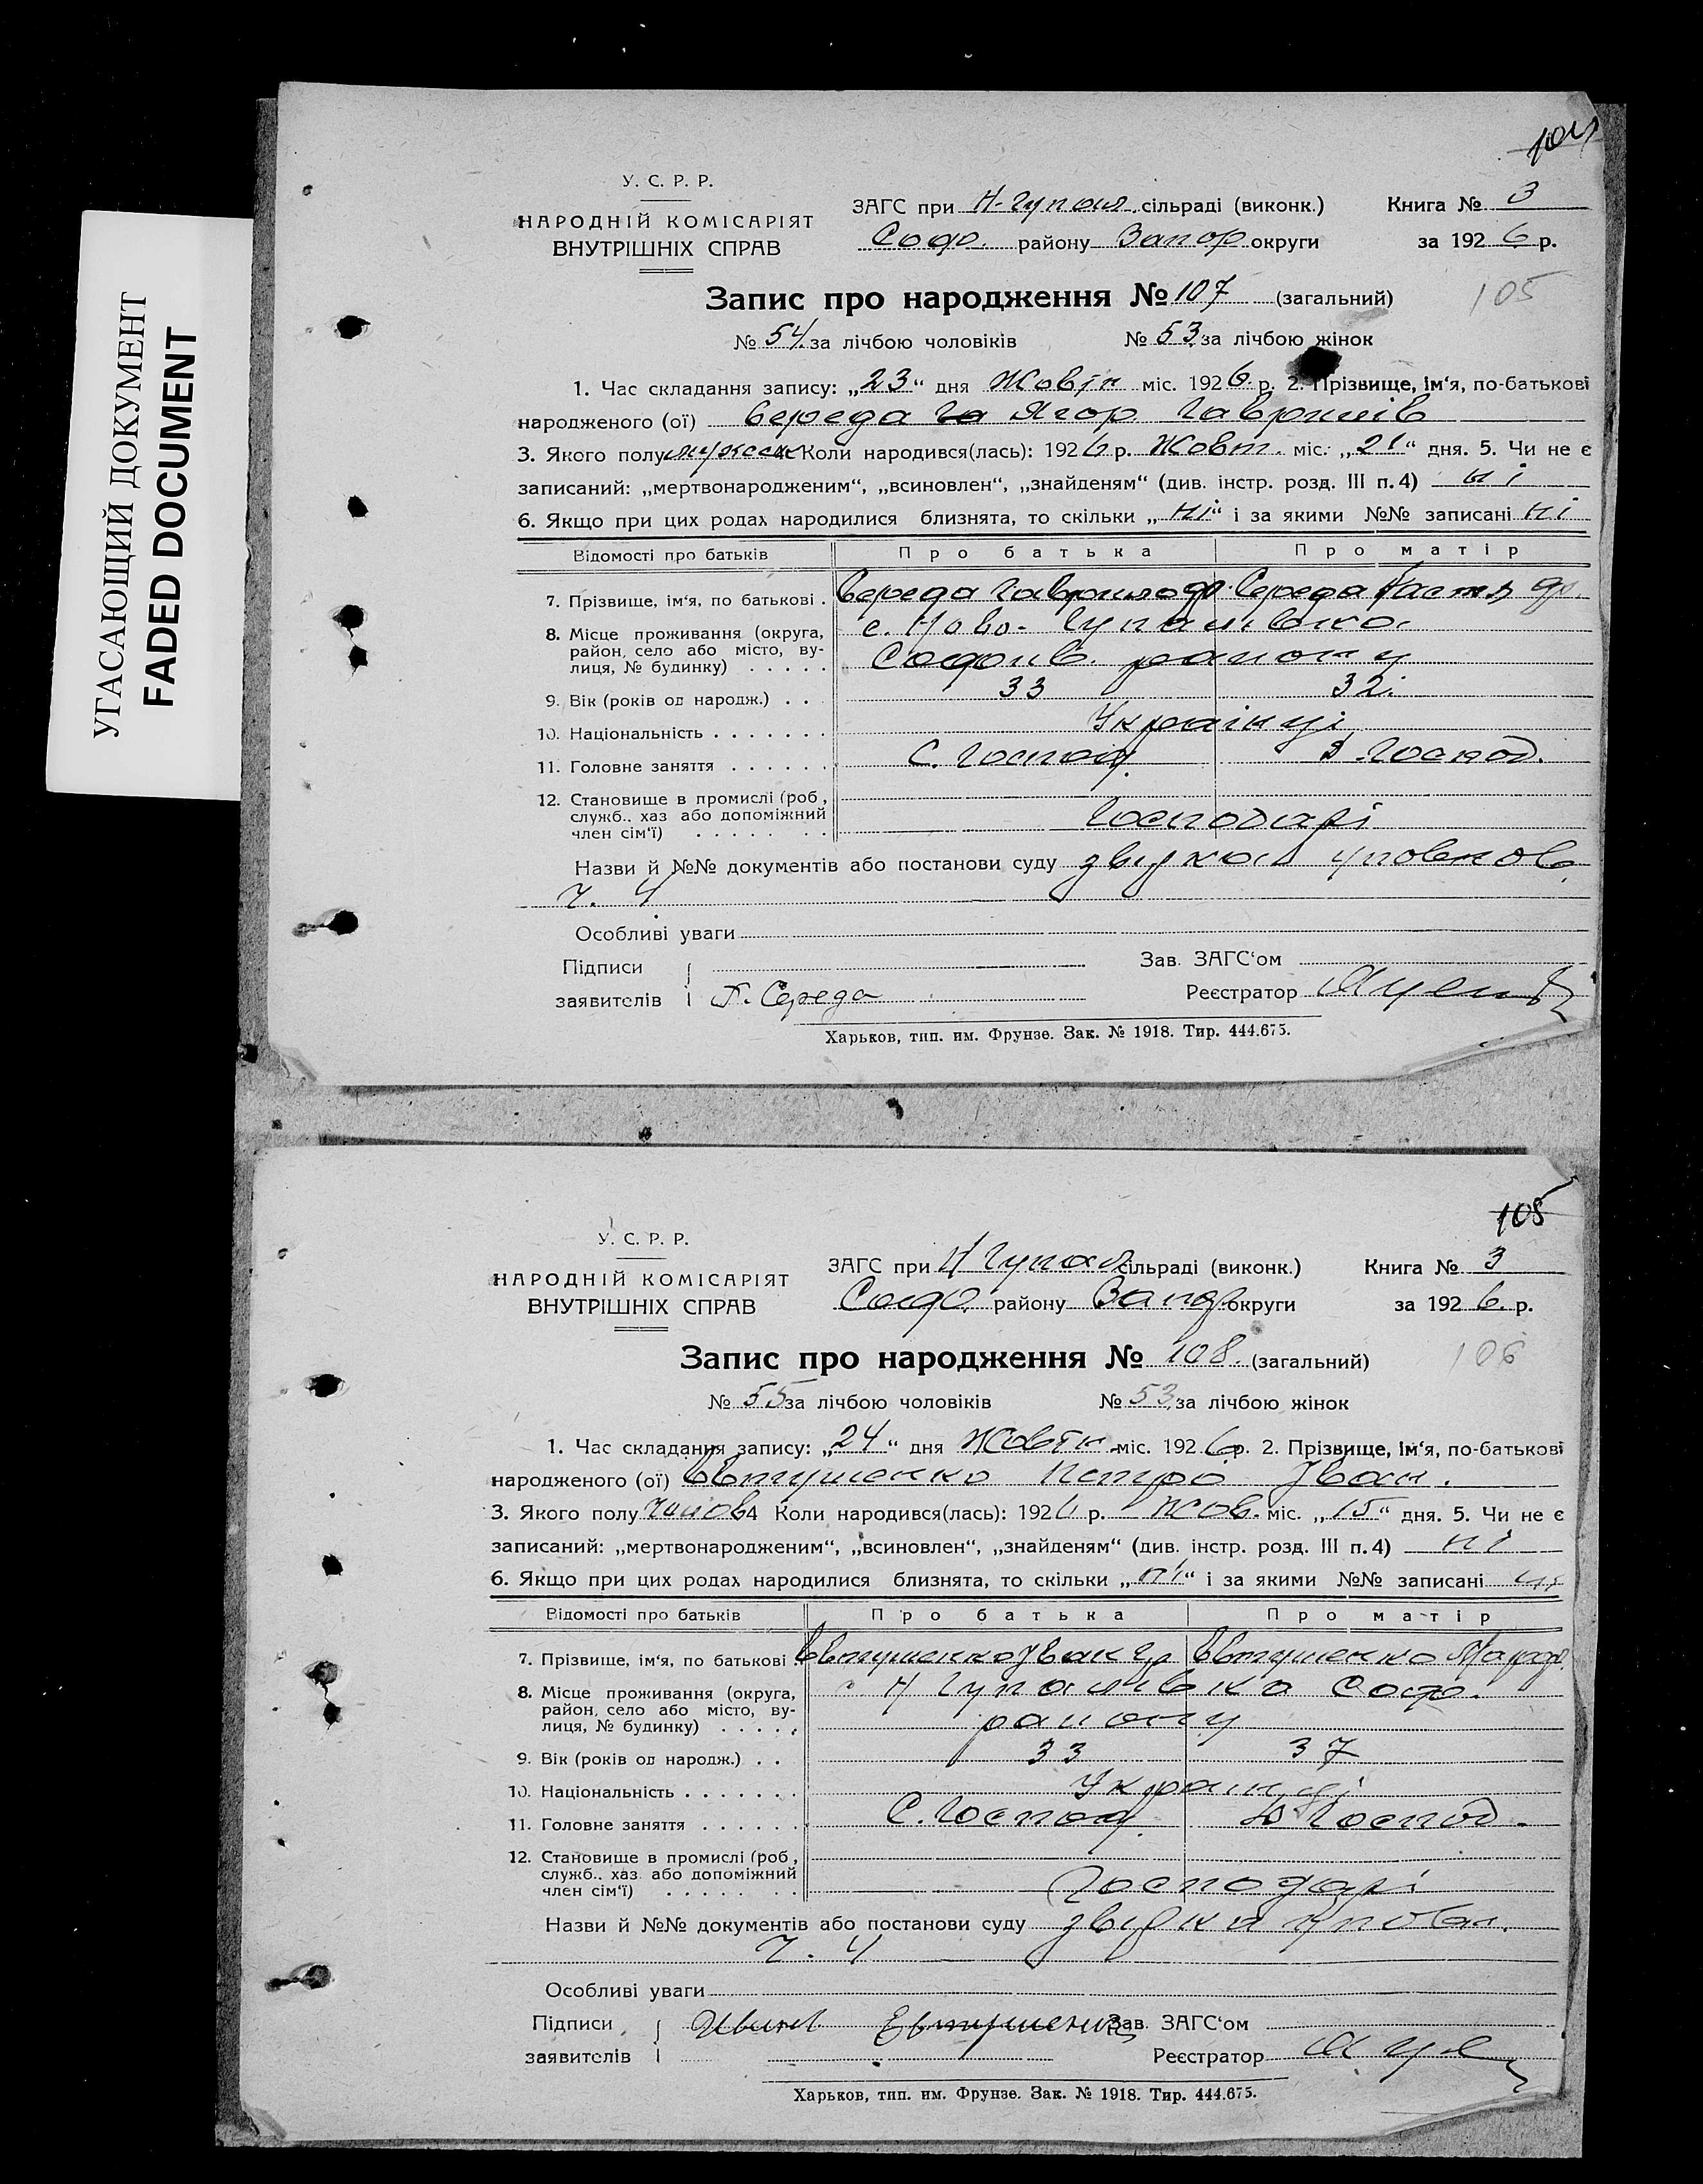 УГАСАЮЩИЙ ДОКУМЕНТ
FADED DOCUMENT
104
У. С. Р. Р.
НАРОДНІЙ КОМІСАРІЯТ
ВНУТРІШНІХ СПРАВ
ЗАГС при Н-Гупал. сільраді (виконк.)
Софо. району Запор округи
Книга № 3
за 1926 р.
Запис про народження № 107 (загальний)
105
№ 54 за лічбою чоловіків № 53 за лічбою жінок
1. Час складання запису: „23“ дня Жовтн міс. 1926 р. 2. Прізвище, ім‘я, по-батькові
народженого (ої) Середа Ягор Гаврилів
3. Якого полу мужеск 4. Коли народився(лась): 1926 р. Жовт. міс. „21“ дня. 5. Чи не є
записаний: „мертвонародженим“, „всиновлен“, „знайденям“ (див. інстр. розд. III п.4) ні
6. Якщо при цих родах народилися близнята, то скільки „ні“ і за якими №№ записані ні
Відомості про батьків Про батька Про матір
7. Прізвище, ім‘я, по батькові . Середа Гаврило Середа Настя
8. Місце проживання (округа, район, село або місто, вулиця, № будинку) . . . . . с. Ново-Гупалівка.
Софоїв. району
9. Вік (років од народж.) . . 33 32.
10. Національність . . . . . . . Українці
11. Головне заняття . . . . . . С. Господ. Д. Господ.
12. Становище в промислі (роб, служб.. хаз або допоміжний член сім‘ї) . . . . . . . Господарі
Назви й №№ документів або постанови суду звідка уповнов.
ч. 4
Особливі уваги
Підписи
заявителів Г. Середа
Зав. ЗАГС‘ом
Реєстратор
Харьков, тип. им. Фрунзе. Зак. № 1918. Тир. 444.675.
105
У. С. Р. Р.
НАРОДНІЙ КОМІСАРІЯТ
ВНУТРІШНІХ СПРАВ
ЗАГС при Н Гупал сільраді (виконк.)
Софо. району Запор. округи
Книга № 3
за 1926 р.
Запис про народження № 108. (загальний)
106
№ 55 за лічбою чоловіків № 53 за лічбою жінок
1. Час складання запису: „24“ дня Жовтн міс. 1926 р. 2. Прізвище, ім‘я, по-батькові
народженого (ої) Евтушенко Петро Іван.
3. Якого полу Чолов 4 Коли народився(лась): 1926 р. Жов. міс. „15“ дня. 5. Чи не є
записаний: „мертвонародженим“, „всиновлен“, „знайденям“ (див. інстр. розд. III п.4) ні
6. Якщо при цих родах народилися близнята, то скільки „ні“ і за якими №№ записані ні
Відомості про батьків Про батька Про матір
7. Прізвище, ім‘я, по батькові . Евтушенко Іван Евтушенко
8. Місце проживання (округа, район, село або місто, вулиця, № будинку) . . . . . с Н Гупалівка Софо.
району
9. Вік (років од народж.) . . 33 37
10. Національність . . . . . . . Українці
11. Головне заняття . . . . . . С. Господ. Д Господ.
12. Становище в промислі (роб, служб.. хаз або допоміжний член сім‘ї) . . . . . . . Господарі
Назви й №№ документів або постанови суду звідка уповн.
ч. 4
Особливі уваги
Підписи
заявителів Иван Евтушенко
Зав. ЗАГС‘ом
Реєстратор
Харьков, тип. им. Фрунзе. Зак. № 1918. Тир. 444.675.